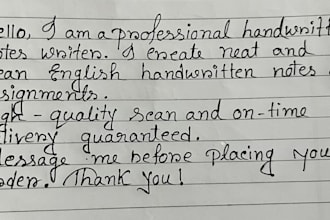 ello, I am a professional handwritt
otes writer. I create neat and
ean English handwritten notes
signments.
gh - quality scan and on-time
livery guaranteed.
essage me before placing you
der. Thank you!